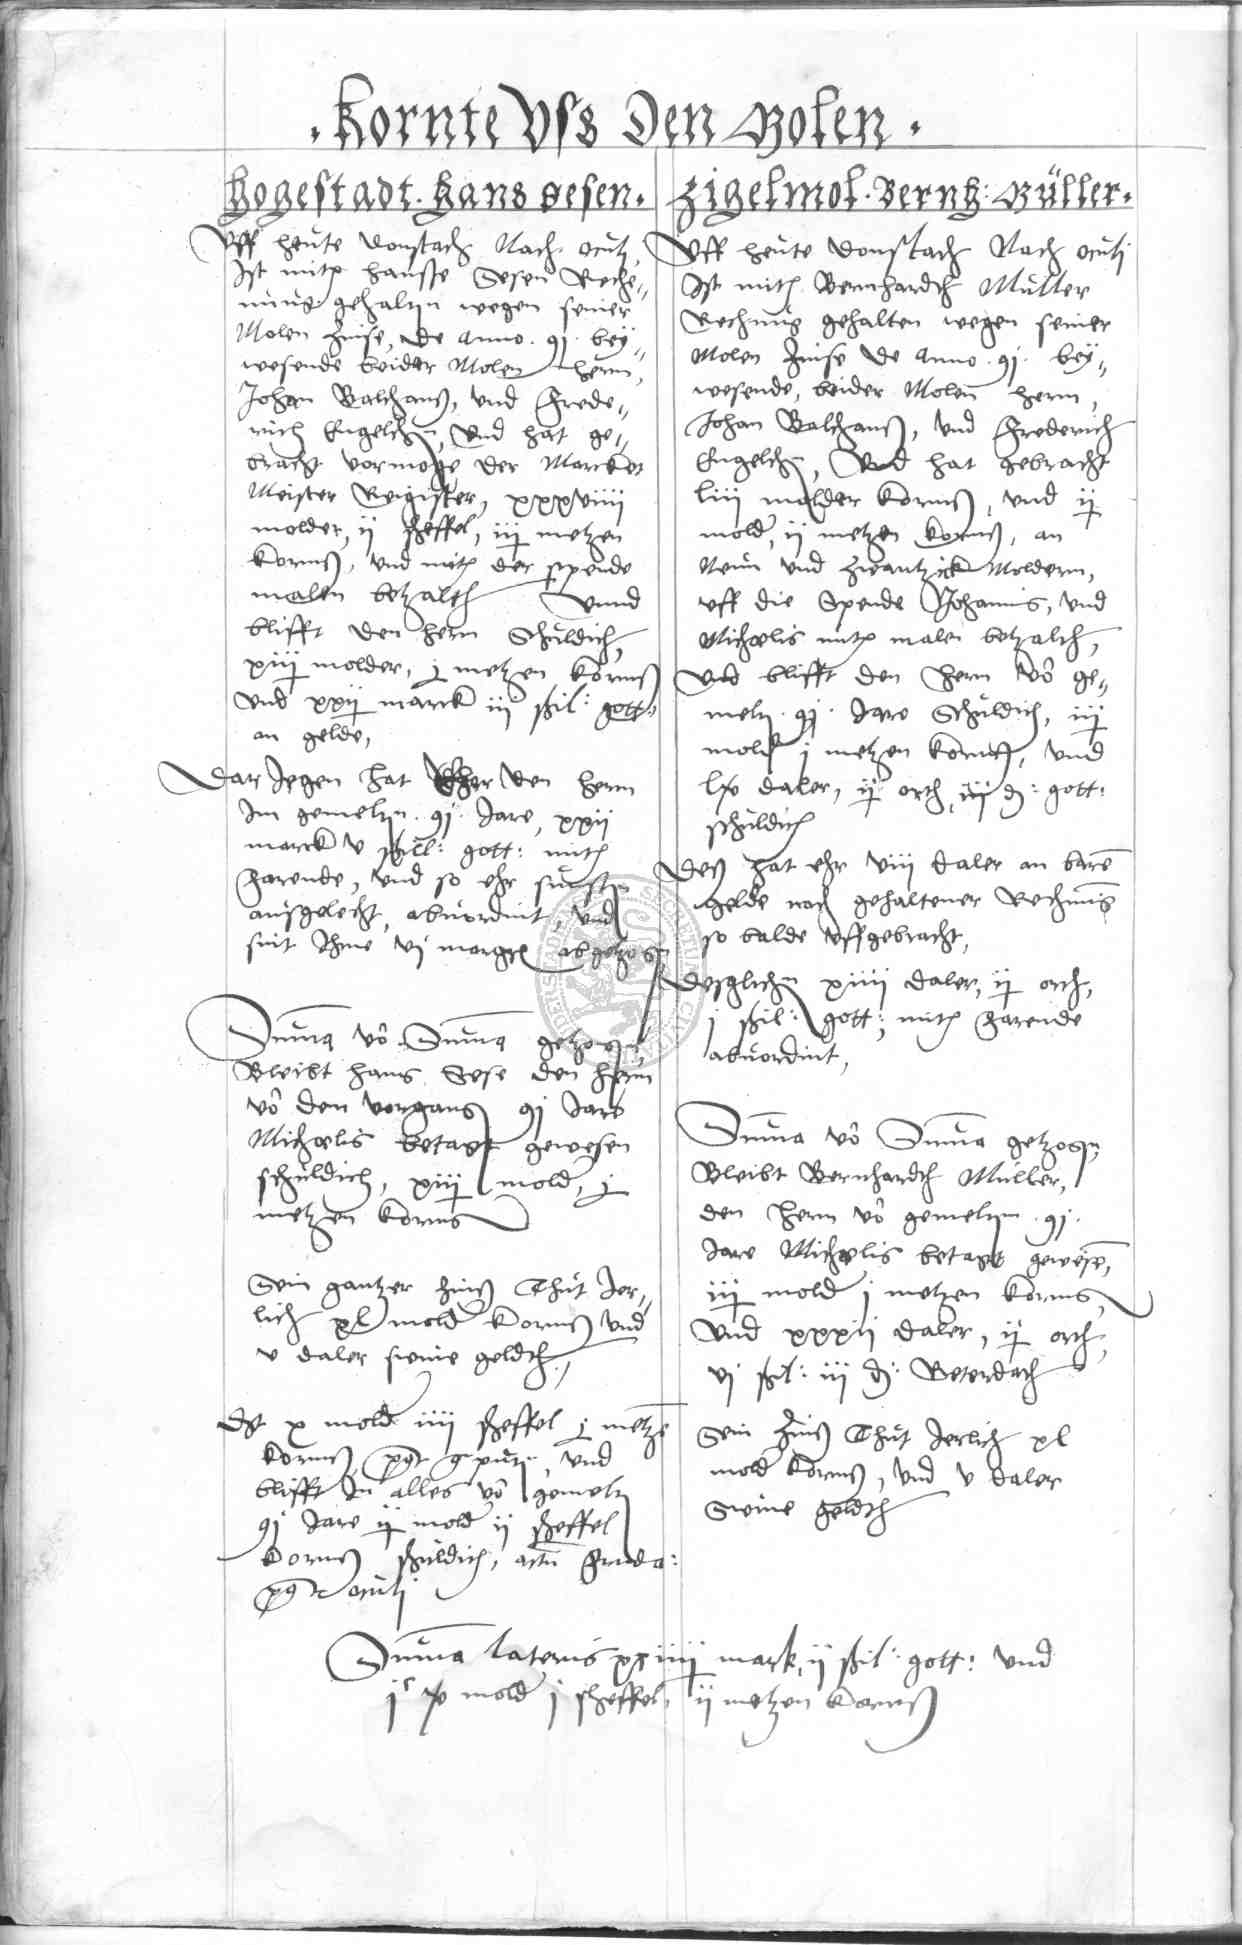 . Kornte Vss Den Molen .
Hogestadt . Hans Sesen .
Vff heute donstach Nach oculi,
Ist mith Hansse Sesen Reche=
nung gehalten wegen seiner
Molen Zinse, de Anno . 91 . bey=
wesende beider Molen hern,
Johan Balthans, und Frede=
rich Engelhen, Vnd hat ge=
bracht vormoge der Marckt
Meister Register, xxxviiii
molder, ij scheffel, iij metzen
Korns, vnd mith der spende
malen betzalth Vnnd
blifft den hern Schuldich,
xiij molder, j metzen Korns
Vnd xxij marck iij schil: gott:
an gelde,
Dar Jegen hat ehr den hern
Im gemelten . 91 . Jare, xxij
marck v schill: gott: mith
Harende, vnd so ehr sunsten
ausgelecht, abuordint, vnd
sint Ihme vj margk abgetzogen
Summa vo Summa getzogen,
Bleibt Hans Sese den hern
vo den vorgans 91 Jare
Michaelis betagt gewesen
schuldich, xiij mold, j
metzen Korns
Sein gantzer Zins Thut Jer=
lich xl mold Korns Vnd
v daler swine geldth,
Dt x mold iiii scheffel j metze
Korns und
blifft In alles vo gemelten
91 Jare ij mold ij scheffel
Korns schuldich, actu
oculi
Zigelmol . Bernh: Müller .
Vff heute donstach Nach oculi
Ist mith Bernhardth Müller
Rechnung gehalten wegen seiner
Molen Zinse de Anno . 91 . bey=
wesende, beider Molen hern,
Johan Balthans, vnd Frederich
Engelhen, Vnd hat gebracht
liii molder Korns, vnd ij
mold, ij metzen Korns, an
Neun vnd zwantzick Moldern,
vff die Spende Johannis, vnd
Michaelis mith malen betzalth,
Vnd blifft den hern vo ge=
melten . 91 . Jare Schuldich, iij
mold j metzen Korns, vnd
daler, ij orth, iij d: gott:
schuldich
Des hat ehr viii daler an bare
gelde nach gehaltener Rechnung
so balde vffgebracht,
Desglichen xiiii daler, ij orth,
j schil: gott: mith Harende
abuordint,
Summa vo Summa getzogen,
Bleibt Bernhardth Müller,
den hern vo gemelten . 91 .
Jare Michaelis betagt gewese,
iij mold j metzen Korns,
Vnd xxxij daler, ij orth,
vj schil: iii d: Beterdach
Sein Zins Thut Jerlich xl
mold Korns, vnd v daler
Swine geldth
Summa lateris xxiiij mark, ij schil: gott: vnd
mold j scheffel, ij metzen Korns